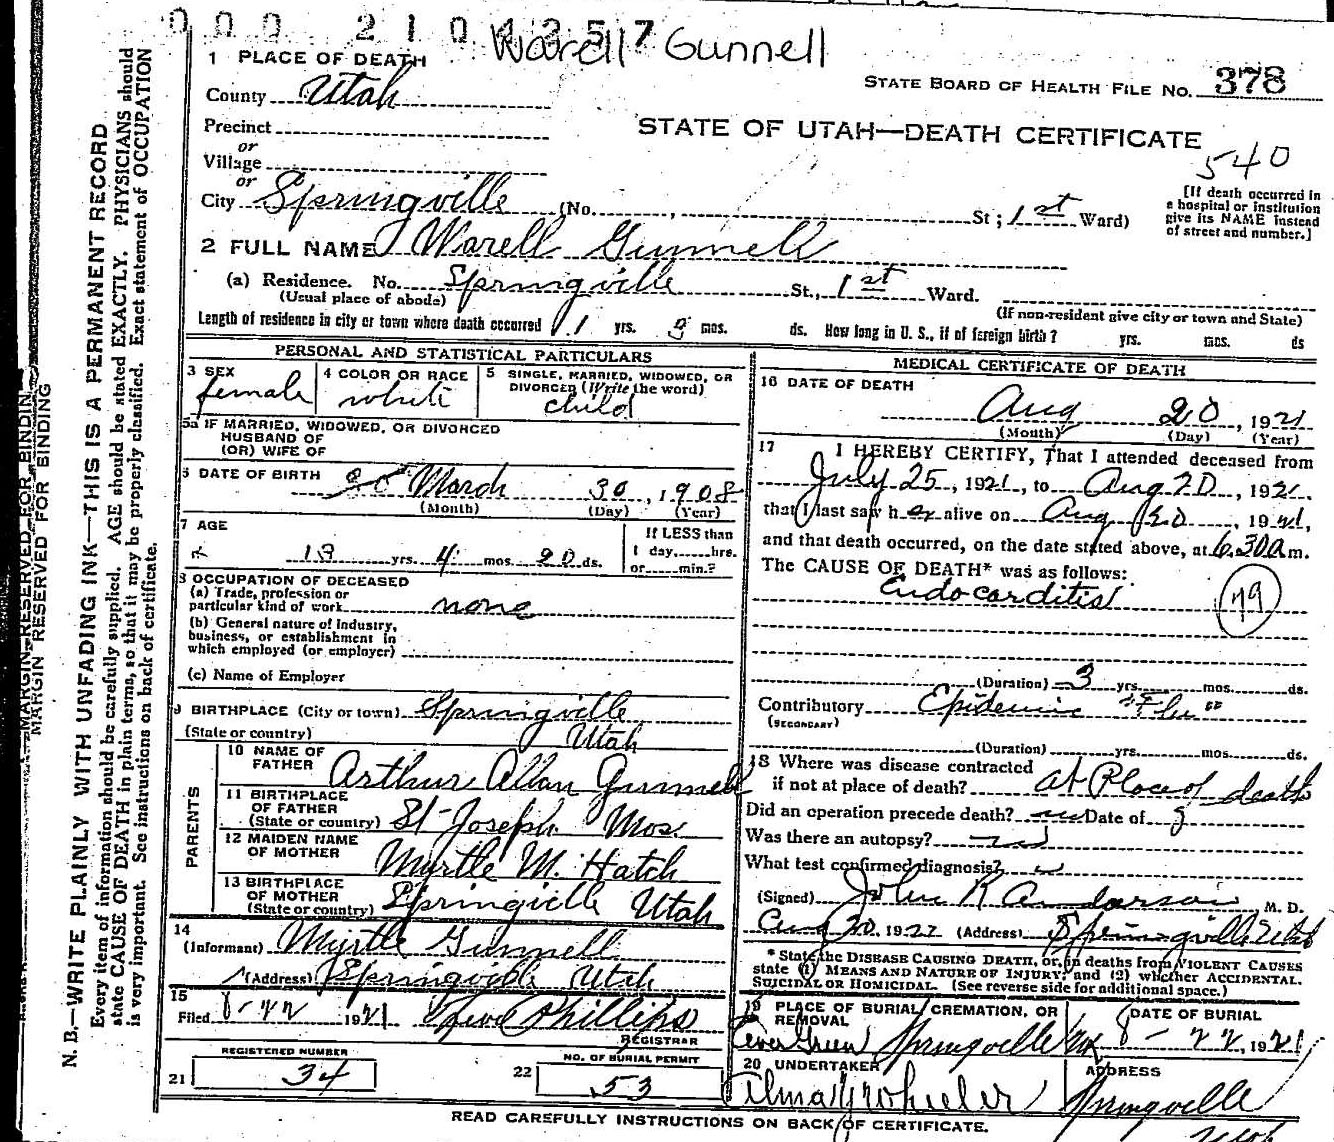 000 2104357
Warell Gunnell
1 PLACE OF DEATH
STATE BOARD OF HEALTH FILE NO. 378
County Utah
Precinct
STATE OF UTAH—DEATH CERTIFICATE
or
Village
540
or
City Springville (No. , St; 1st Ward)
[If death occurred in
a hospital or institution
give its NAME instead
of street and number.]
2 FULL NAME Warell Gunnell
(a) Residence. No. Springville St., 1st Ward.
(Usual place of abode)
(If non-resident give city or town and State)
Length of residence in city or town where death occurred yrs. mos. ds. How long in U. S., if of foreign birth? yrs. mos. ds
PERSONAL AND STATISTICAL PARTICULARS
3 SEX
female
4 COLOR OR RACE
white
5 SINGLE, MARRIED, WIDOWED, OR
DIVORCED (Write the word)
child
5a IF MARRIED, WIDOWED, OR DIVORCED
HUSBAND OF
(OR) WIFE OF
6 DATE OF BIRTH March 30, 1908
(Month) (Day) (Year)
7 AGE
13 yrs. 4 mos. 20 ds.
If LESS than
1 day, hrs.
or min.?
8 OCCUPATION OF DECEASED
(a) Trade, profession or
particular kind of work none
(b) General nature of industry,
business, or establishment in
which employed (or employer)
(c) Name of Employer
9 BIRTHPLACE (City or town) Springville
(State or country) Utah
PARENTS
10 NAME OF
FATHER Arthur Allan Gunnell
11 BIRTHPLACE
OF FATHER
(State or country) St Joseph Mos.
12 MAIDEN NAME
OF MOTHER Myrtle M. Hatch
13 BIRTHPLACE
OF MOTHER
(State or country) Springville Utah
14
(Informant) Myrtle Gunnell
(Address) Springville Utah
15
Filed 8-22 1921 Phillips
REGISTRAR
REGISTERED NUMBER
21 34
NO. OF BURIAL PERMIT
22 53
MEDICAL CERTIFICATE OF DEATH
16 DATE OF DEATH
Aug 20, 1921
(Month) (Day) (Year)
17 I HEREBY CERTIFY, That I attended deceased from
July 25, 1921, to Aug 20, 1921.
that I last saw her alive on Aug 20, 1921,
and that death occurred, on the date stated above, at 6.30 a m.
The CAUSE OF DEATH* was as follows:
Endocarditis
79
(Duration) 3 yrs. mos. ds.
Contributory Epidemic "Flu"
(SECONDARY)
(Duration) yrs. mos. ds.
18 Where was disease contracted
if not at place of death? at Place of death
Did an operation precede death? Date of
Was there an autopsy?
What test confirmed diagnosis?
(Signed) John R Anderson M. D.
Aug 20, 1922 (Address) Springville Utah
* State the DISEASE CAUSING DEATH, or, in deaths from VIOLENT CAUSES
state (1) MEANS AND NATURE OF INJURY; and (2) whether ACCIDENTAL.
SUICIDAL OR HOMICIDAL. (See reverse side for additional space.)
19 PLACE OF BURIAL, CREMATION, OR
REMOVAL
Ever Green Springville
DATE OF BURIAL
8-22, 1921
20 UNDERTAKER
Wheeler
ADDRESS
Springville
Utah
READ CAREFULLY INSTRUCTIONS ON BACK OF CERTIFICATE.
MARGIN RESERVED FOR BINDIN
MARGIN RESERVED FOR BINDING
N. B.—WRITE PLAINLY WITH UNFADING INK—THIS IS A PERMANENT RECORD
Every item of information should be carefully supplied. AGE should be stated EXACTLY. PHYSICIANS should
state CAUSE OF DEATH in plain terms, so that it may be properly classified. Exact statement of OCCUPATION
is very important. See instructions on back of certificate.